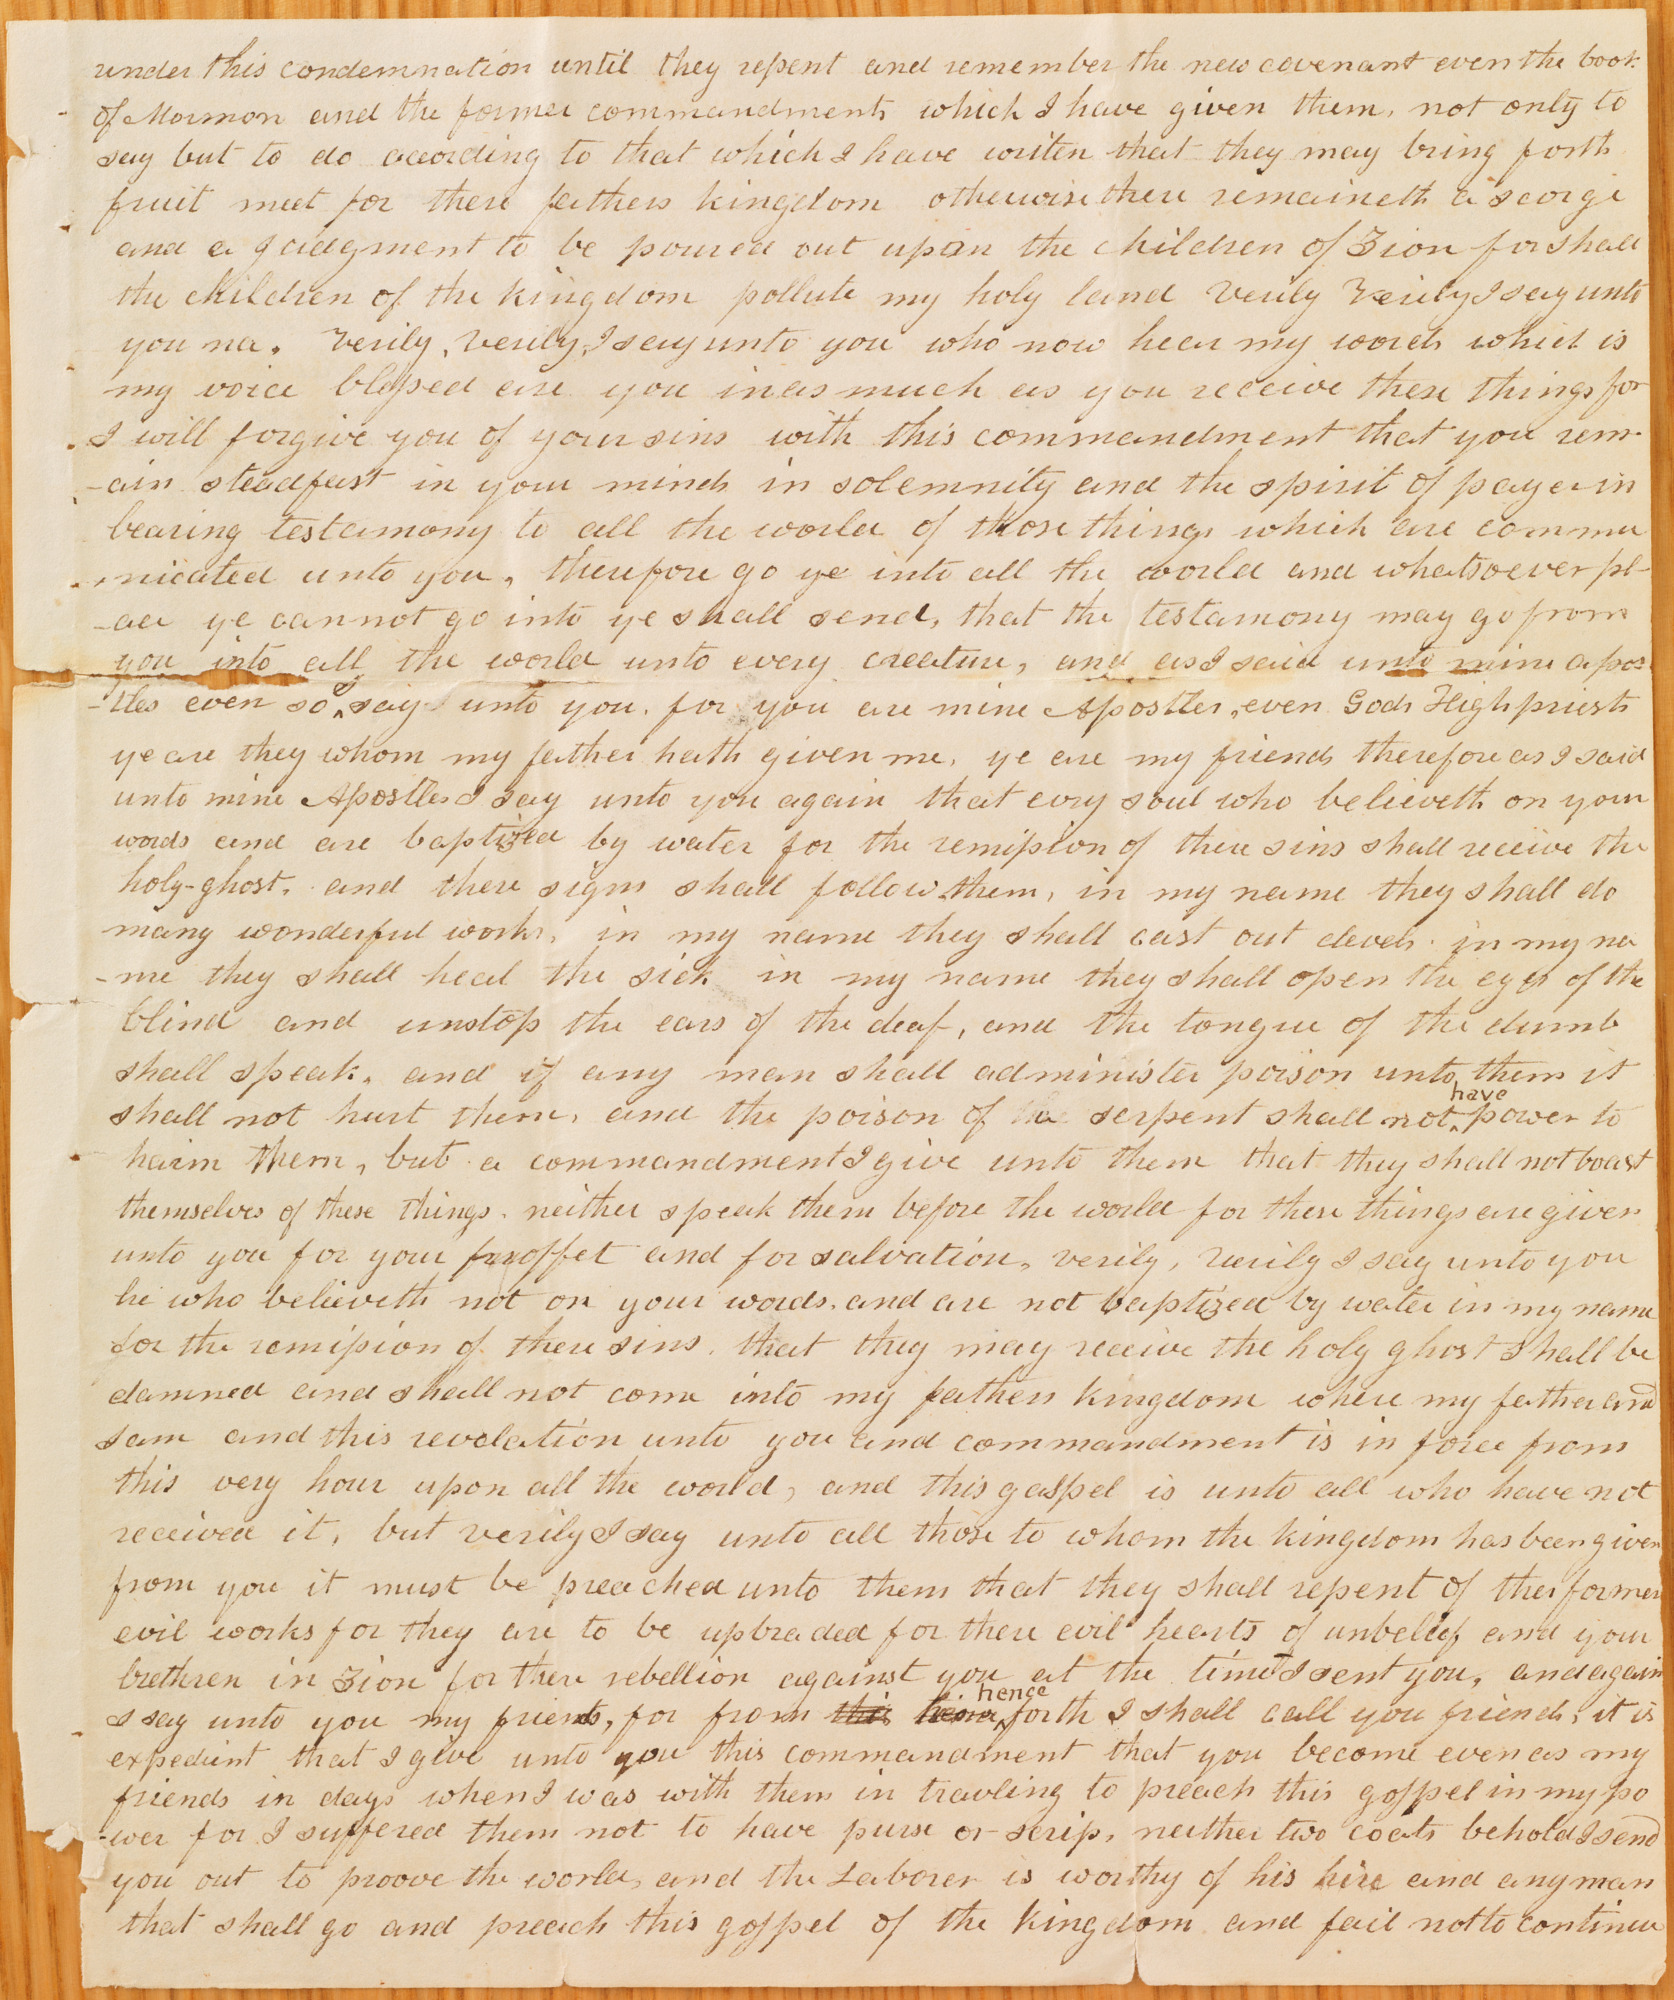 under this condemnation until they repent and remember the new covenant even the book
of Mormon and the former commandments which I have given them, not only to
say but to do acording to that which I have writen that they may bring forth
fruit meet for there fathers kingdom otherwise there remaineth a scorge
and a judgment to be poured out upon the children of Zion for shall
the children of the kingdom pollute my holy land Verily Verily I say unto
you na. Verily, Verily, I say unto you who now hear my words which is
my voice blessed are you inasmuch as you receive these things for
I will forgive you of your sins with this commandment that you rem-
-ain steadfast in your minds in solemnity and the spirit of payer in
bearing testamony to all the world of those things which are commu
-nicated unto you, therefore go ye into all the world and whatsoever pl-
-ace ye cannot go into ye shall send, that the testamony may go from
you into all the world unto every creature, and as I said unto mine apos-
-tles even so I say unto you. for you are mine Apostles, even Gods High priests
ye are they whom my father hath given me, ye are my friends therefore as I said
unto mine Apostles I say unto you again that evry soul who believeth on your
words and are baptized by water for the remission of there sins shall receive the
holy-ghost. and these signs shall follow them, in my name they shall do
many wonderful works, in my name they shall cast out devels. in my na
-me they shall heal the sick in my name they shall open the eyes of the
blind and unstop the ears of the deaf, and the tongue of the dumb
shall speak, and if any man shall administer poison unto them it
shall not hurt them, and the poison of the serpent shall not have power to
harm them, but a commandment I give unto them that they shall not boast
themselves of these things. neither speak them before the world for these things are given
unto you for your proffet and for salvation, verily, verily I say unto you
he who believeth not on your words. and are not baptized by water in my name
for the remission of there sins, that they may receive the holy ghost shall be
damned and shall not come into my fathers kingdom where my father and
I am and this revelation unto you and commandment is in force from
this very hour upon all the world, and this gospel is unto all who have not
received it, but verily I say unto all those to whom the kingdom has been given
from you it must be preached unto them that they shall repent of their former
evil works for they are to be upbraded for there evil hearts of unbelief and your
brethren in Zion for there rebellion against you at the time I sent you, and again
I say unto you my friends, for from this henge forth I shall call you friends, it is
expedient that I give unto you this commandment that you become even as my
friends in days when I was with them in travling to preach this gospel in my po
-wer for I suffered them not to have purse or scrip, neither two coats behold I send
you out to proove the world, and the Laborer is worthy of his hire and any man
that shall go and preach this gospel of the kingdom and fail not to continue